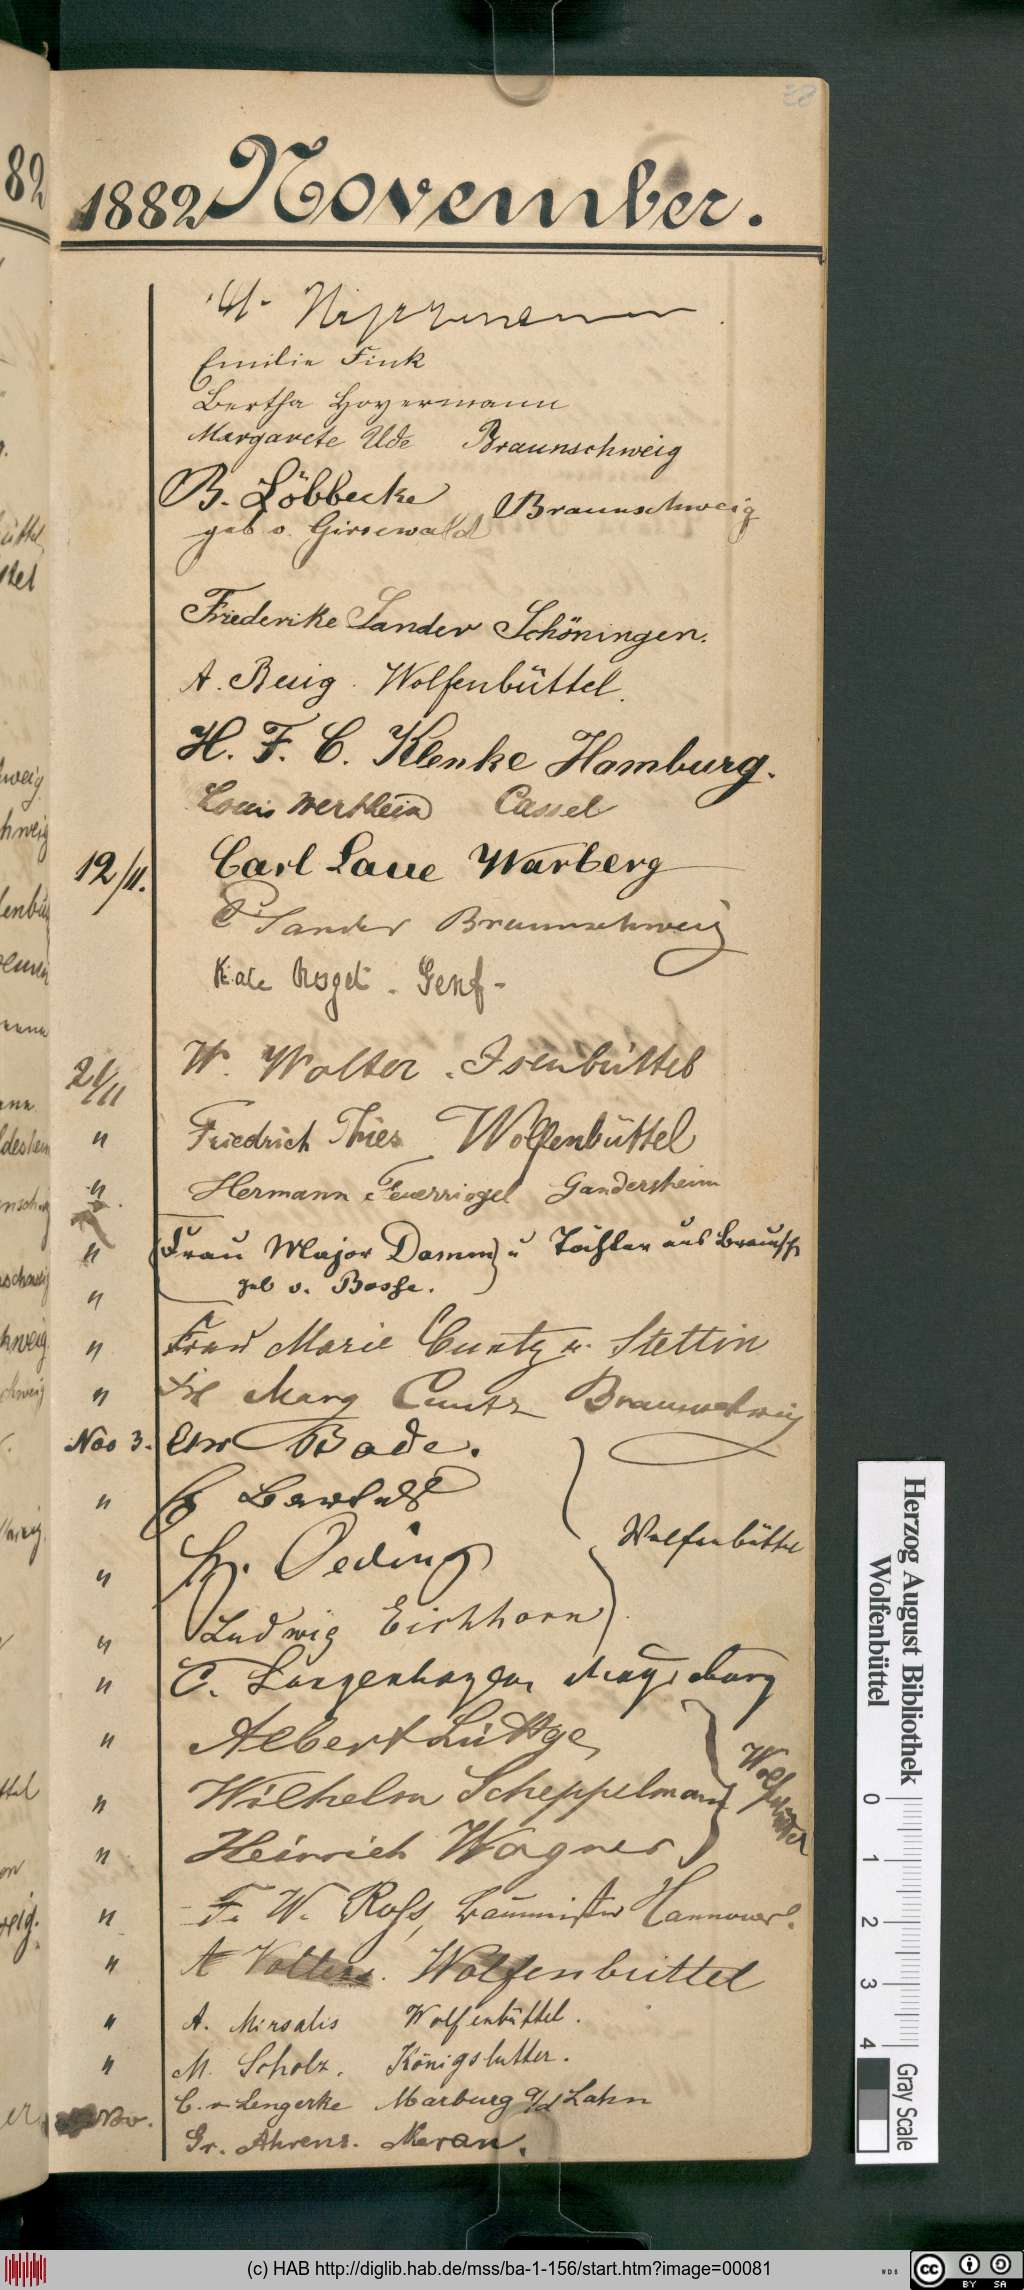 38
1882 November.
Emilie Fink
Bertha Hoyermann
Margarete Ude Braunschweig
B. Löbbecke Braunschweig
geb v. Girsewald
Friederike Sander Schöningen.
A. Besig. Wolfenbüttel.
H. F. C. Klenke Hamburg.
Louis Wertheim Cassel
12/11. Carl Laue Warberg
C Sander Braunschweig
Roget. Genf-
21/11 W. Wolter. Isenbüttel
" Friedrich Thies Wolfenbüttel
" Hermann Feuerriegel Gandersheim
" Frau Major Damm u Tochter aus Braunsch
" geb v. Bosse.
" Frau Marie Cuntz u. Stettin
" Frl Marg Cuntz Braunschweig
Nov 3. Bode.
" Bartels
" Oeding Wolfenbüttel
" Ludwig Eichhorn
" C. Langenhagen Magdeburg
" Albert Lüttge
" Wilhelm Scheppelmann Wolfenbüttel
" Heinrich Wagner
" F. W. Roß, Baumeister Hannover.
" A Volters. Wolfenbüttel
" A. Mirsalis Wolfenbüttel.
" M. Scholz. Königslutter.
Nov. C. v. Lengerke Marburg a/d Lahn
Gr. Ahrens. Meran.
Herzog August Bibliothek
Wolfenbüttel
0 1 2 3 4
Gray Scale
(c) HAB http://diglib.hab.de/mss/ba-1-156/start.htm?image=00081
WDB
cc BY SA